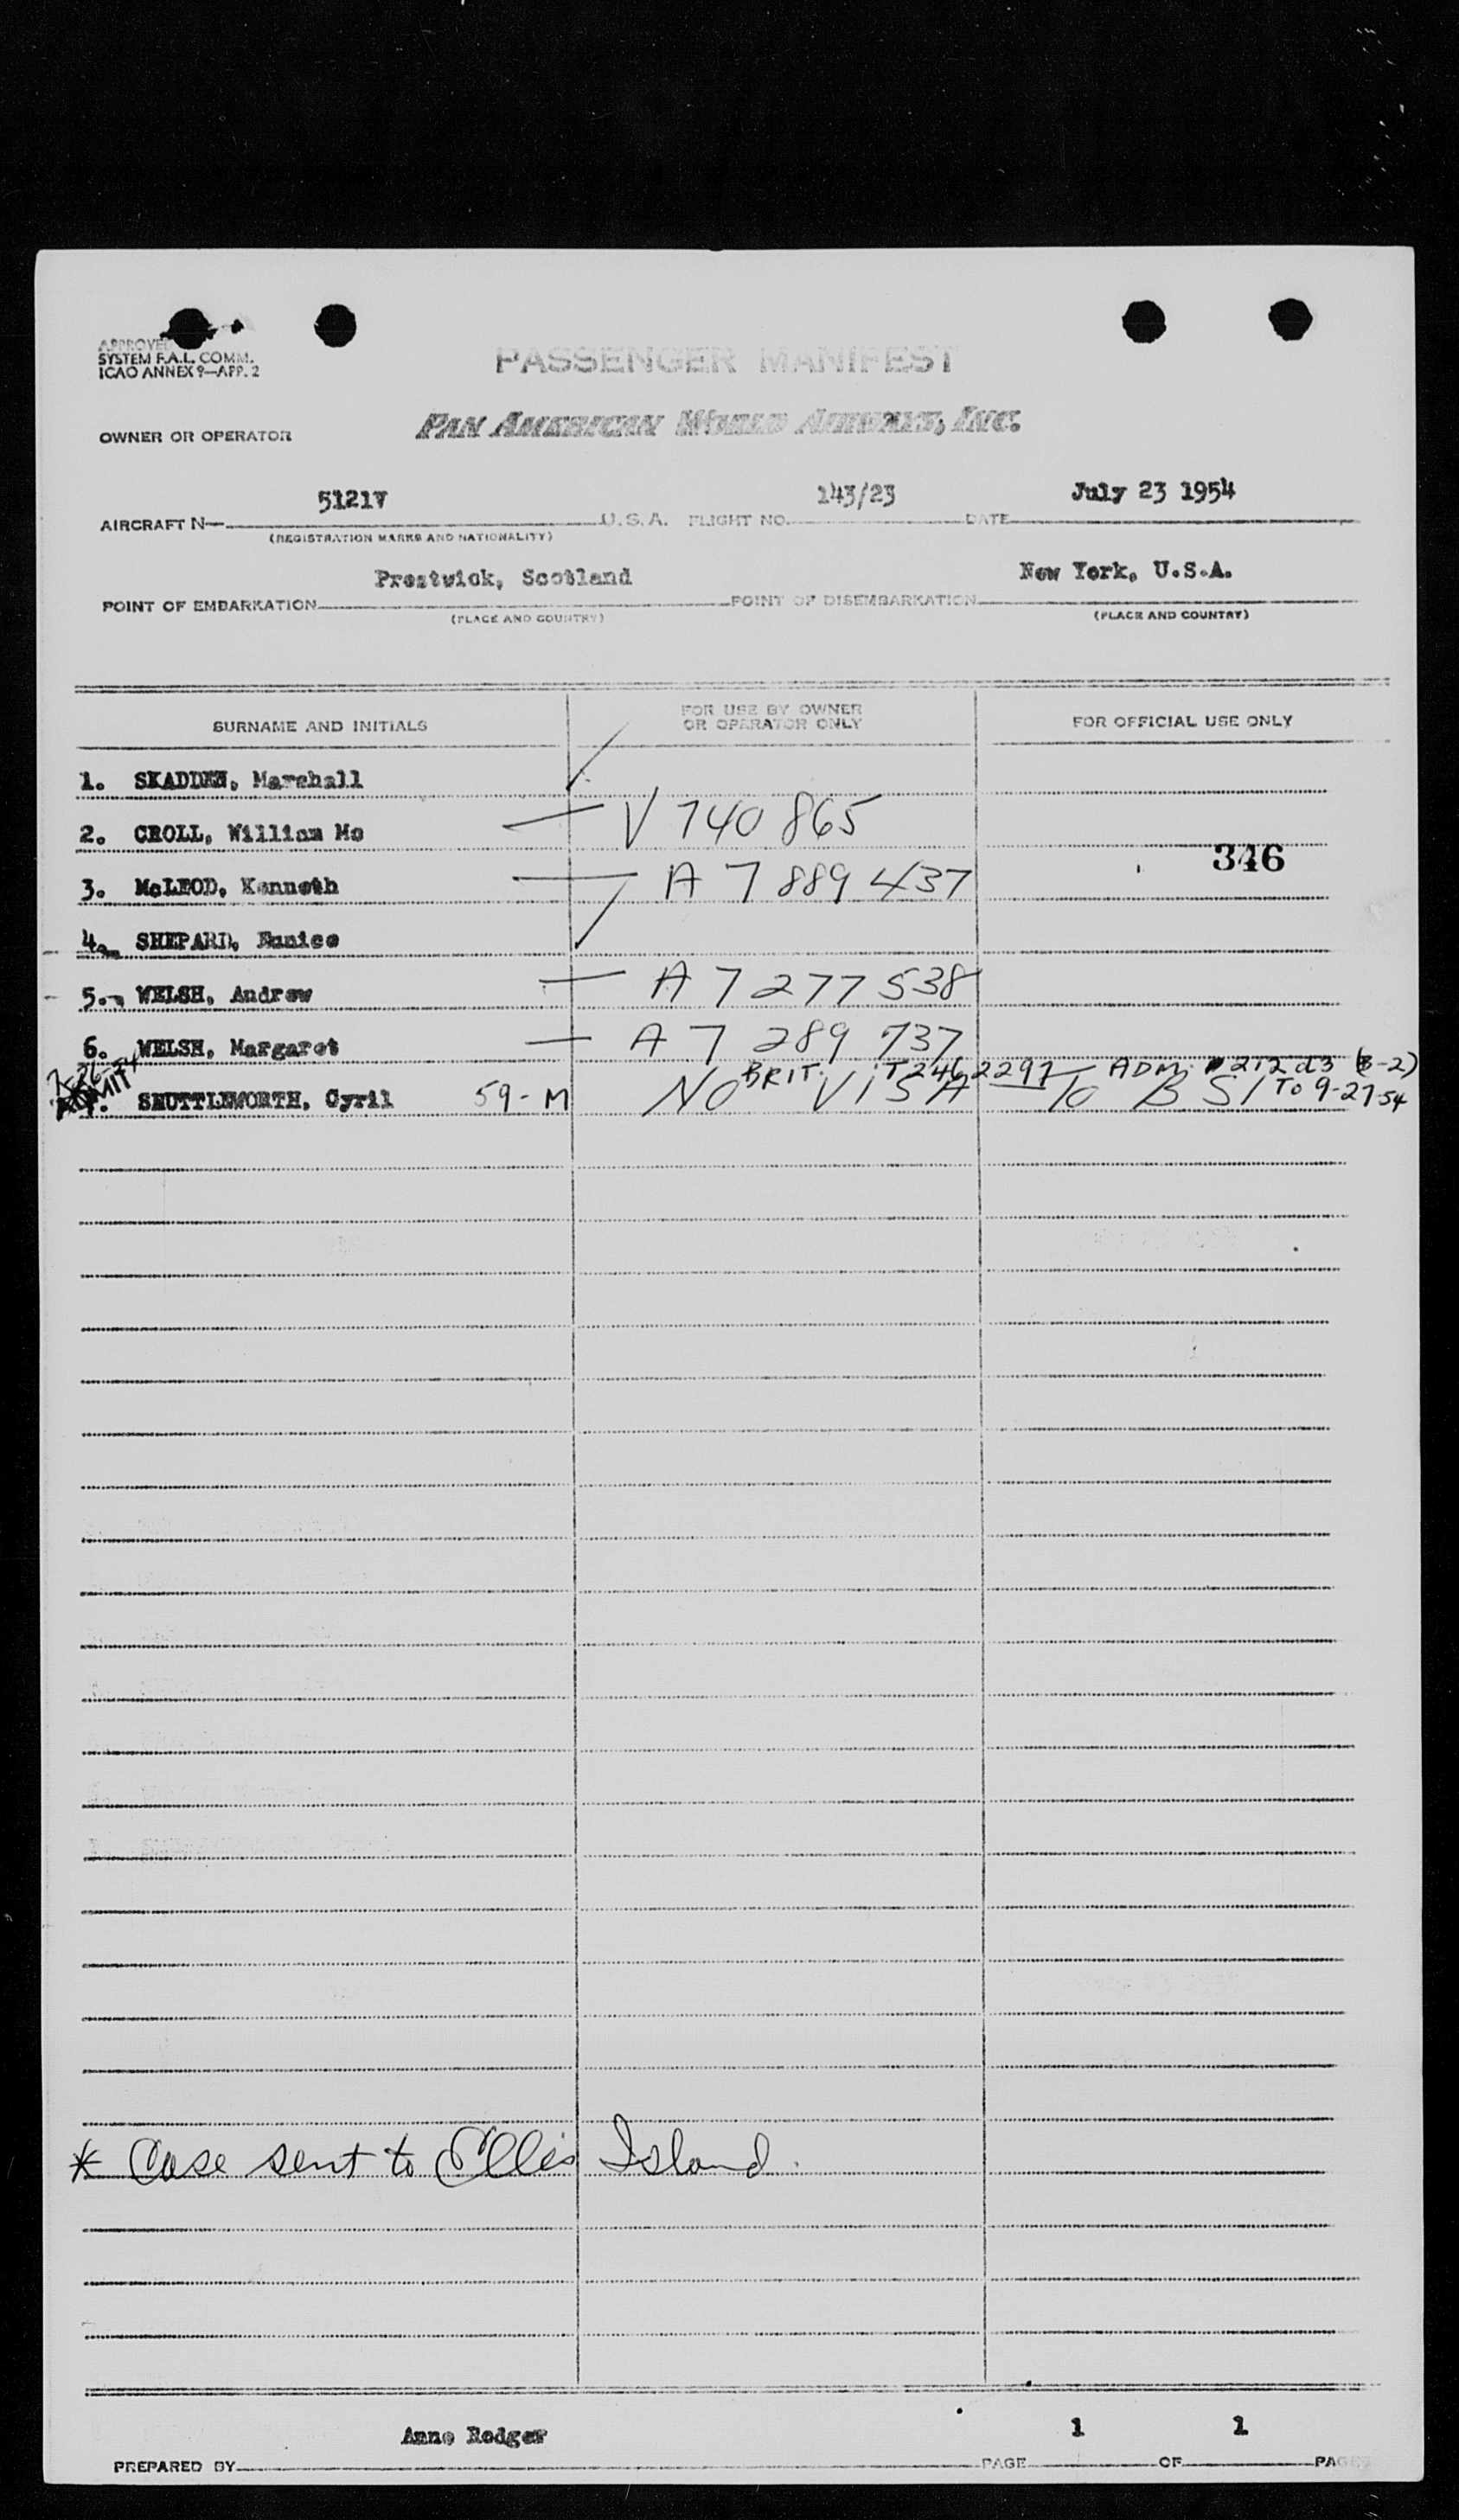 APPROVED
SYSTEM F.A.L. COMM.
ICAO ANNEX 9—APP. 2
PASSENGER MANIFEST
OWNER OR OPERATOR PAN AMERICAN WORLD AIRWAYS, INC.
AIRCRAFT N— 5121V U.S.A. FLIGHT NO. 143/23 DATE July 23 1954
(REGISTRATION MARKS AND NATIONALITY)
POINT OF EMBARKATION Prestwick, Scotland POINT OF DISEMBARKATION New York, U.S.A.
(PLACE AND COUNTRY) (PLACE AND COUNTRY)
SURNAME AND INITIALS FOR USE BY OWNER OR OPERATOR ONLY FOR OFFICIAL USE ONLY
1. SKADDEN, Marshall
2. CROLL, William Mc — V 740 865
346
3. McLEOD, Kenneth — A 7 889 437
4. SHEPARD, Eunice
5. WELSH, Andrew — A 7 277 538
6. WELSH, Margaret — A 7 289 737
7-26-54 BRIT. T2462297 ADM. 212 d3 (B-2)
ADMIT
7. SHUTTLEWORTH, Cyril 59-M NO VISA To B S I To 9-27-54
* Case sent to Ellis Island.
PREPARED BY Anne Rodger PAGE 1 OF 1 PAGES